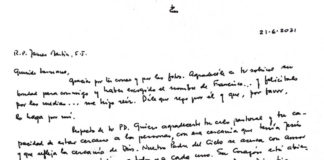 21-6-2021
R.P. James Martin, S.J.
Querido hermano,
Gracias por tu correo y por las fotos. Agradecele a tu sobrino su
bondad para conmigo y haber escogido el nombre de Francisco... y felicitalo
por las medias... me hizo reír. Dile que rezo por él y que, por favor,
lo haga por mí.
Respecto de tu PD. Quiero agradecerte tu celo pastoral y tu ca-
pacidad de estar cercano a las personas, con esa cercanía que tenía Jesús
y que refleja la cercanía de Dios. Nuestro Padre del Cielo se acerca con amor
cada uno. Su Corazón está abier